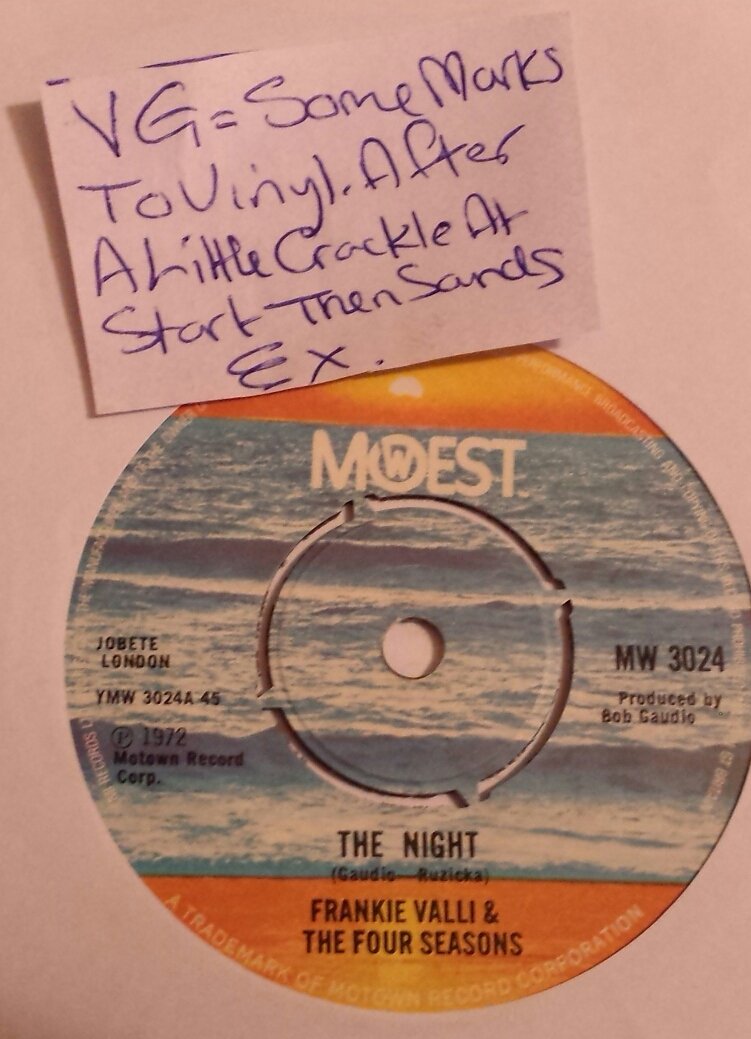 VG = Some Marks
To Vinyl. After
A Little Crackle At
Start Then Sands
Ex.
PERFORMANCE BROADCASTING AND
MOWEST
JOBETE
LONDON
YMW 3024A 45
℗ 1972
Motown Record
Corp.
MW 3024
Produced by
Bob Gaudio
THE NIGHT
(Gaudio—Ruzicka)
FRANKIE VALLI &
THE FOUR SEASONS
A TRADEMARK OF MOTOWN RECORD CORPORATION